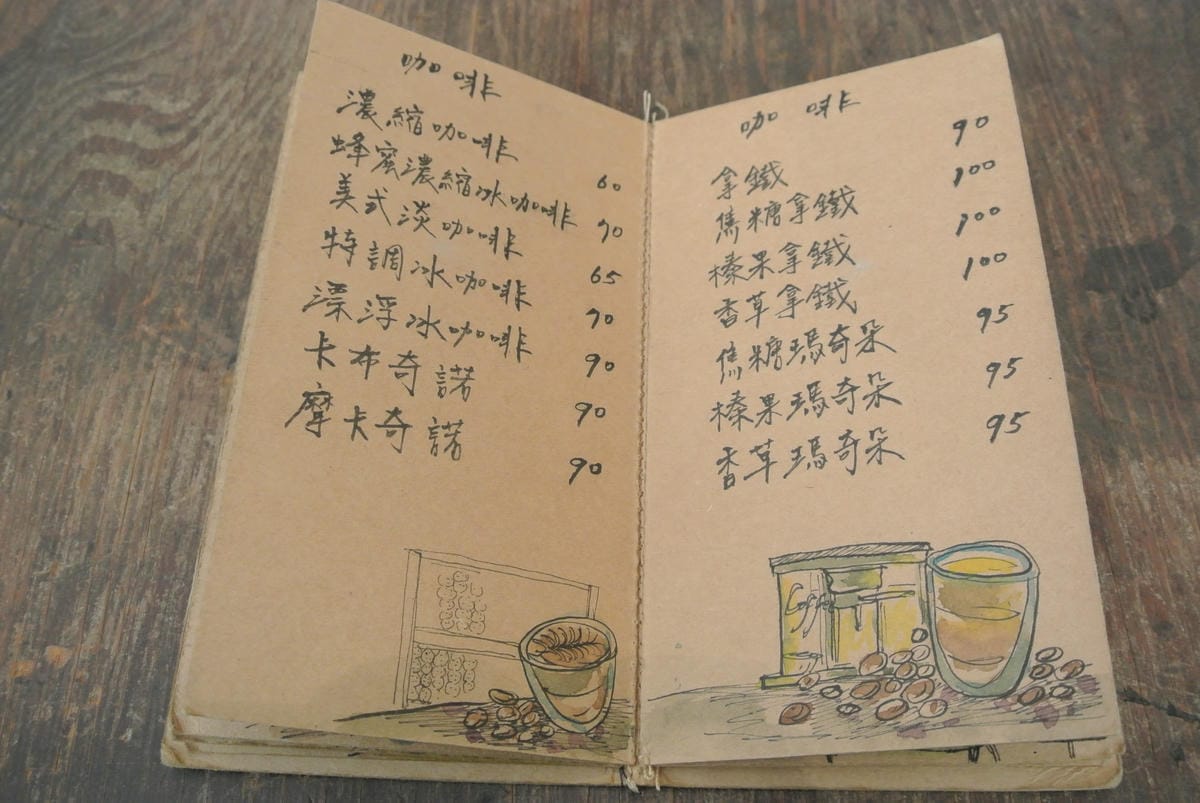 咖啡
濃縮咖啡 60
蜂蜜濃縮冰咖啡 90
美式淡咖啡 65
特調冰咖啡 90
漂浮冰咖啡 90
卡布奇諾 90
摩卡奇諾 90
咖啡
拿鐵 90
焦糖拿鐵 100
榛果拿鐵 100
香草拿鐵 100
焦糖瑪奇朵 95
榛果瑪奇朵 95
香草瑪奇朵 95
Coffee